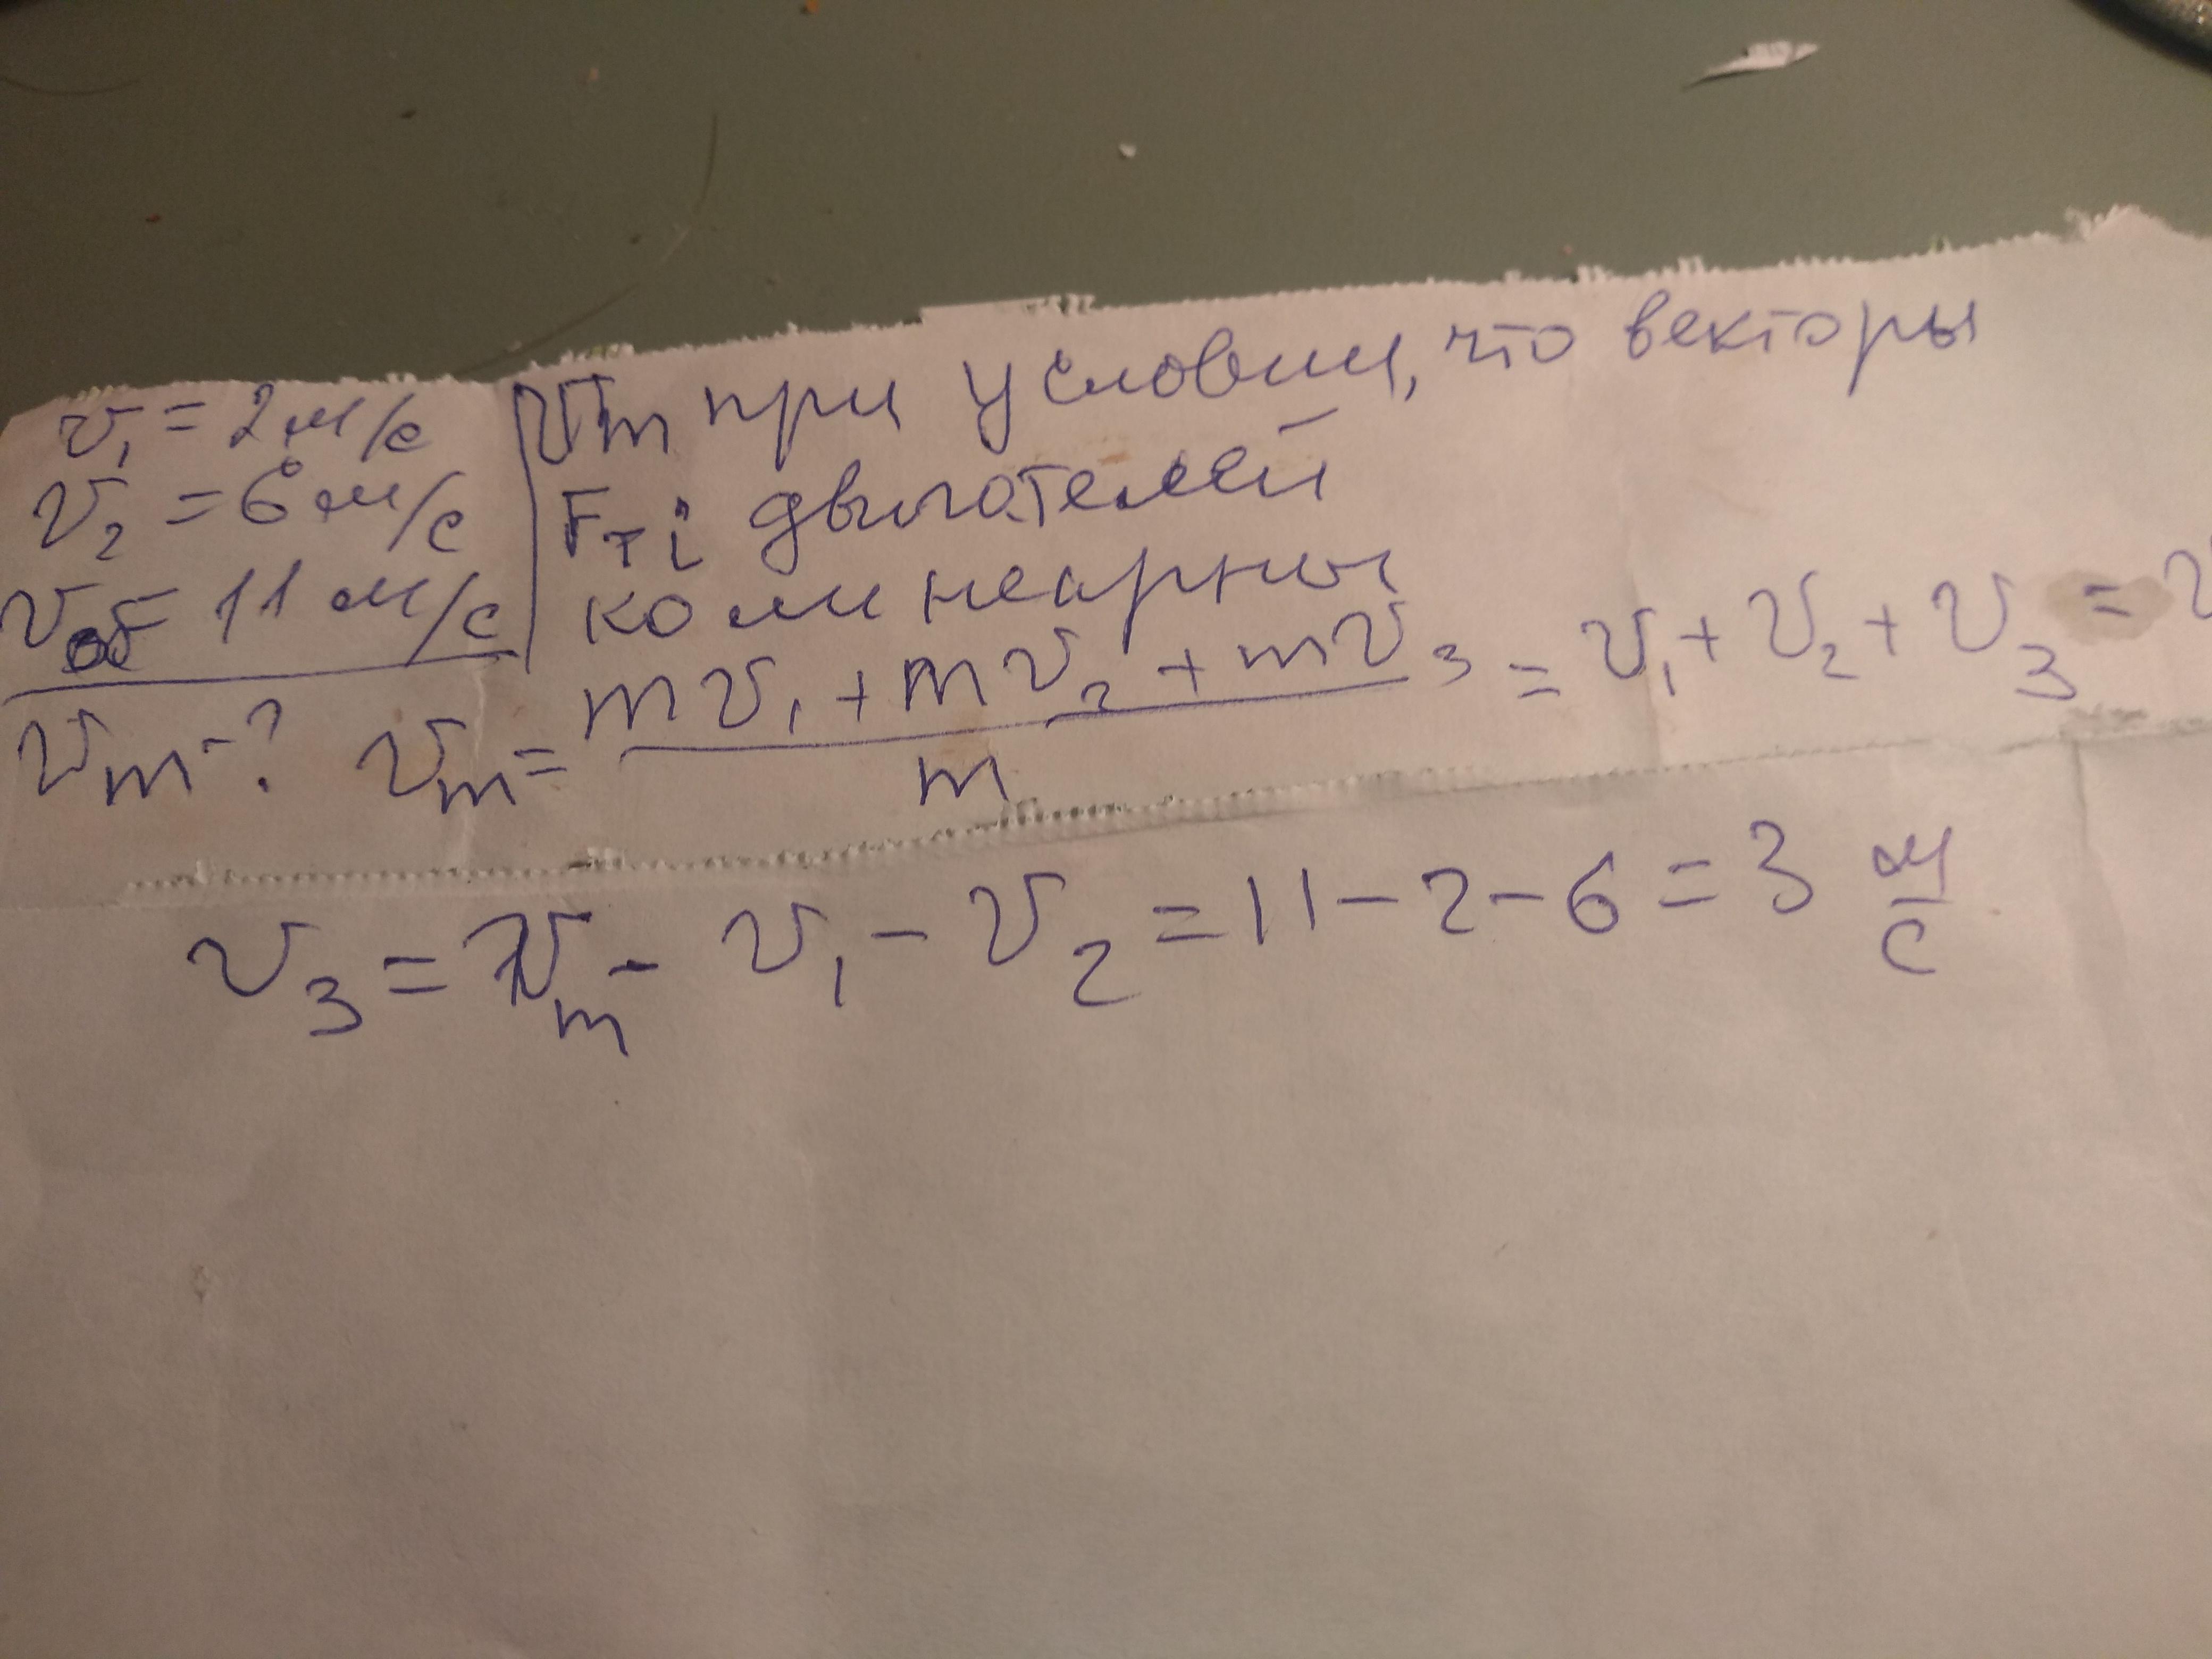 v₁ = 2 м/с
v₂ = 6 м/с
vоб = 11 м/с
vm - ?
vm при условии, что векторы
Fтi двигателей
колинеарны
vm = (mv₁ + mv₂ + mv₃)/m = v₁ + v₂ + v₃ =
v₃ = vm - v₁ - v₂ = 11 - 2 - 6 = 3 м/с